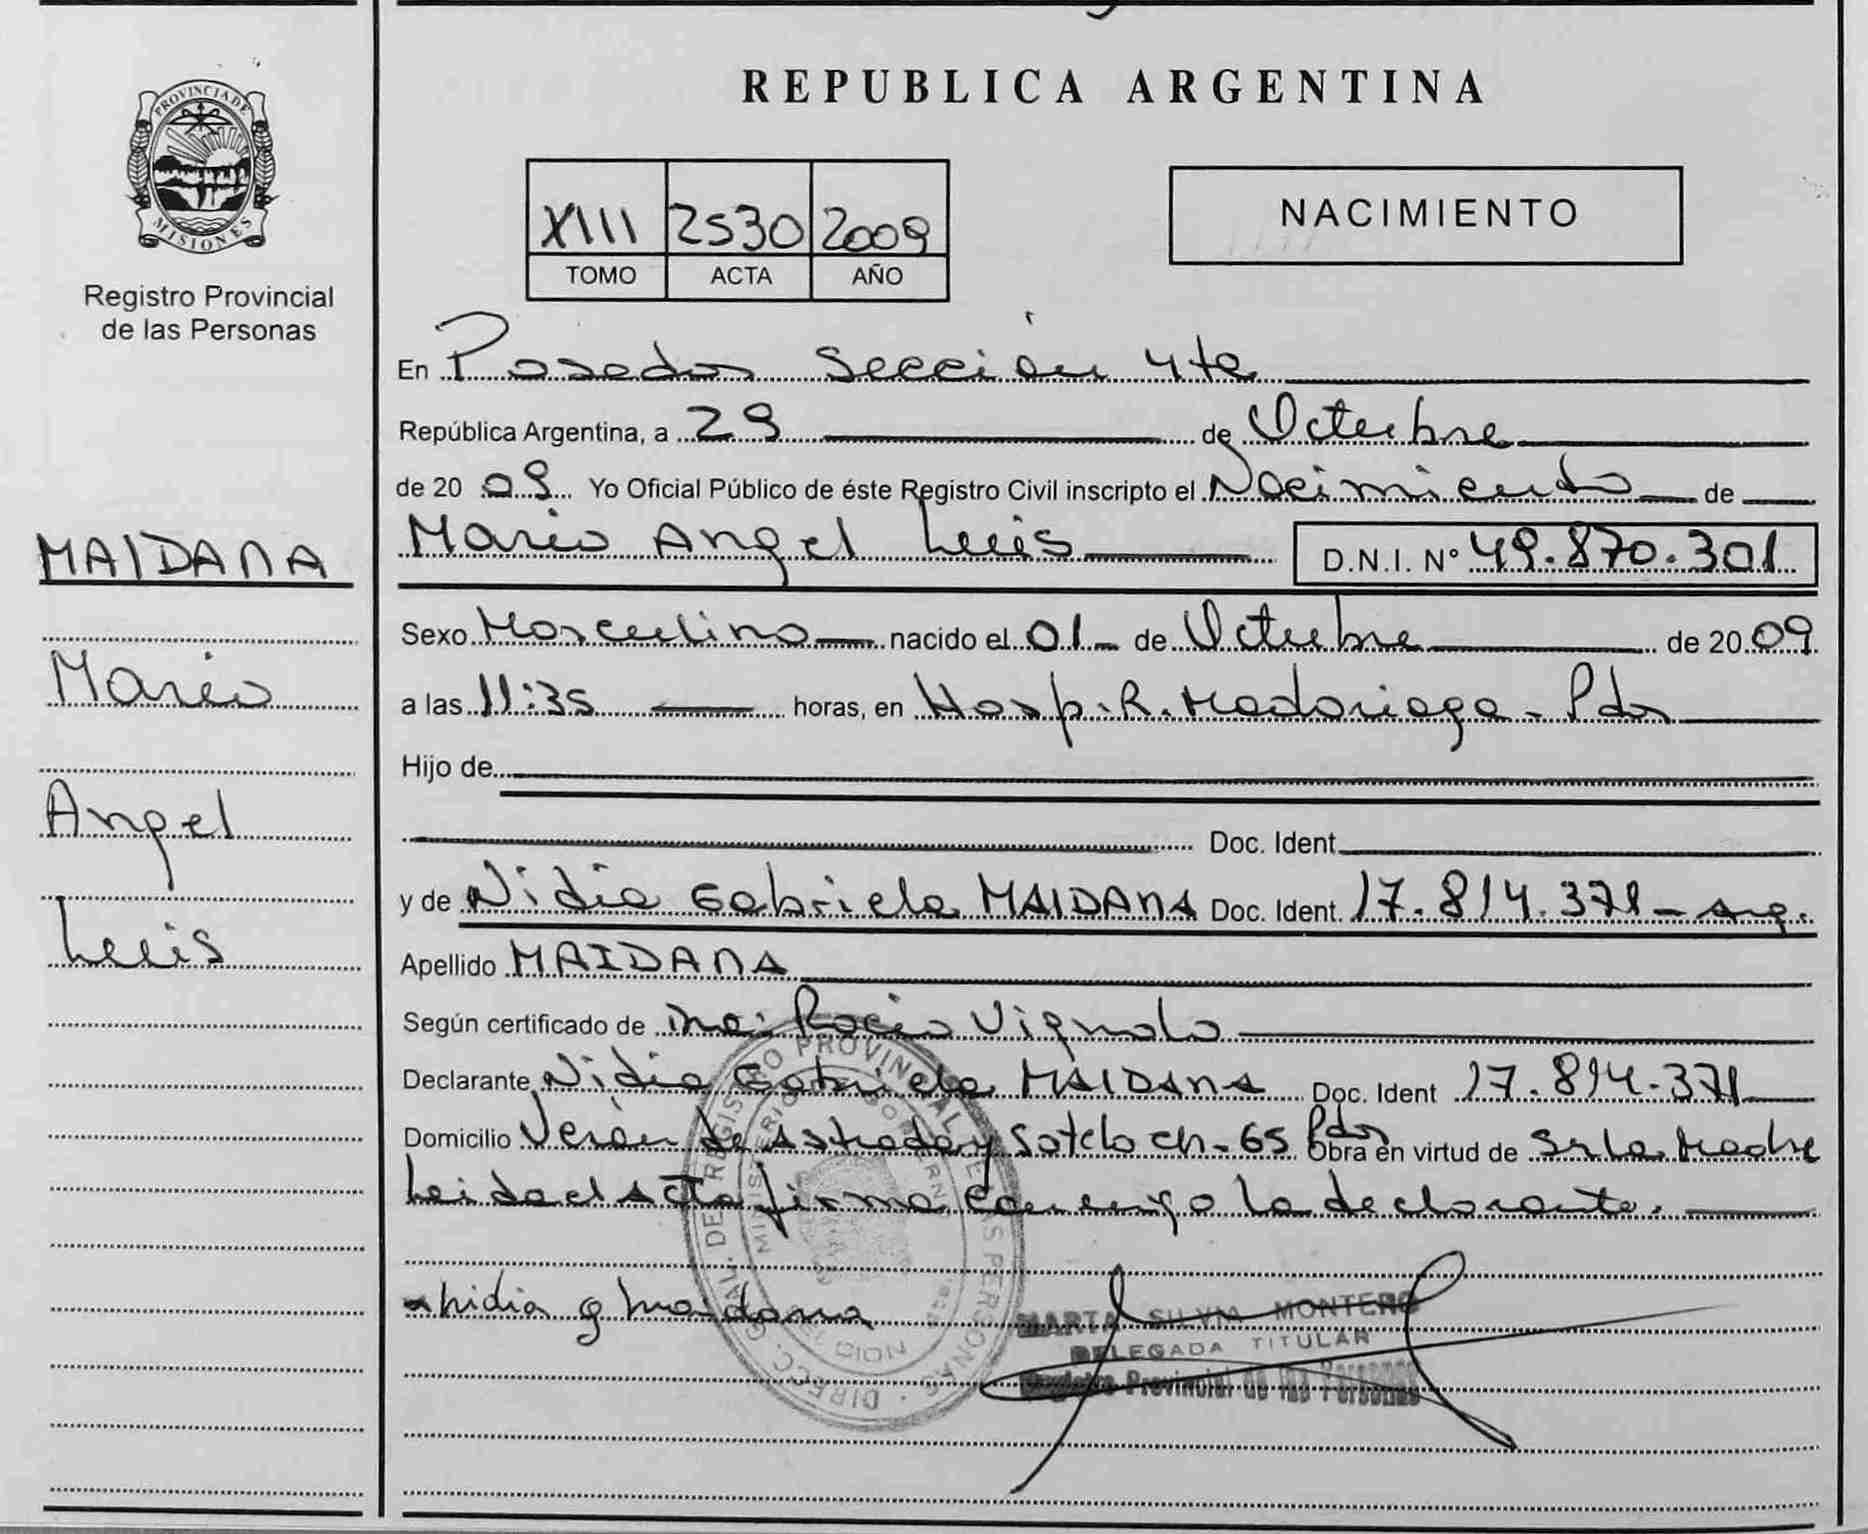 PROVINCIA DE
MISIONES
Registro Provincial
de las Personas
MAIDANA
Mario
Angel
Luis
REPUBLICA ARGENTINA
XIII 2530 2009
TOMO ACTA AÑO
NACIMIENTO
En Posadas Sección 4ta
República Argentina, a 29 de Octubre
de 20 09 Yo Oficial Público de éste Registro Civil inscripto el Nacimiento de
Mario Angel Luis D.N.I. N° 49.870.301
Sexo Masculino nacido el 01 de Octubre de 20 09
a las 11:35 horas, en Hosp. R. Madariaga - Pdas
Hijo de
Doc. Ident.
y de Nidia Gabriela MAIDANA Doc. Ident. 17.814.371 - Arg.
Apellido MAIDANA
Según certificado de Rocio Vignolo
Declarante Nidia Gabriela MAIDANA Doc. Ident 17.814.371
Domicilio Verón de Astrada y Sotelo ch-65 Pdas Obra en virtud de Ser la Madre
Leida el Acta firma conmigo la declarante.
Nidia g maidana
MARTA SILVIA MONTERO
DELEGADA TITULAR
Registro Provincial de las Personas
DIREC. GRAL. DEL REGISTRO PROVINCIAL DE LAS PERSONAS
MINISTERIO DE GOBIERNO